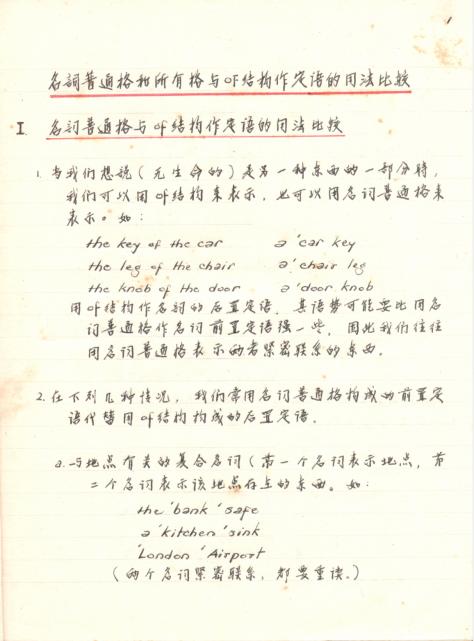 1
名詞普通格和所有格与OF结构作定语的用法比较
I. 名词普通格与of结构作定语的用法比较
1. 当我们想说(无生命的)是另一种东西的一部分时,
我们可以用of结构来表示,也可以用名词普通格来
表示。如:
the key of the car a 'car key
the leg of the chair a 'chair leg
the knob of the door a 'door knob
用of结构作名詞的后置定语,其语势可能要比用名
词普通格作名词前置定语强一些,因此我们往往
用名词普通格表示两者紧密联系的东西。
2. 在下列几种情况,我们常用名词普通格构成的前置定
语代替用of结构构成的后置定语。
a. 与地点有关的复合名词(第一个名词表示地点,第
二个名词表示该地点存在的东西。如:
the 'bank 'safe
a 'kitchen 'sink
'London 'Airport
(两个名词紧密联系,都要重读。)